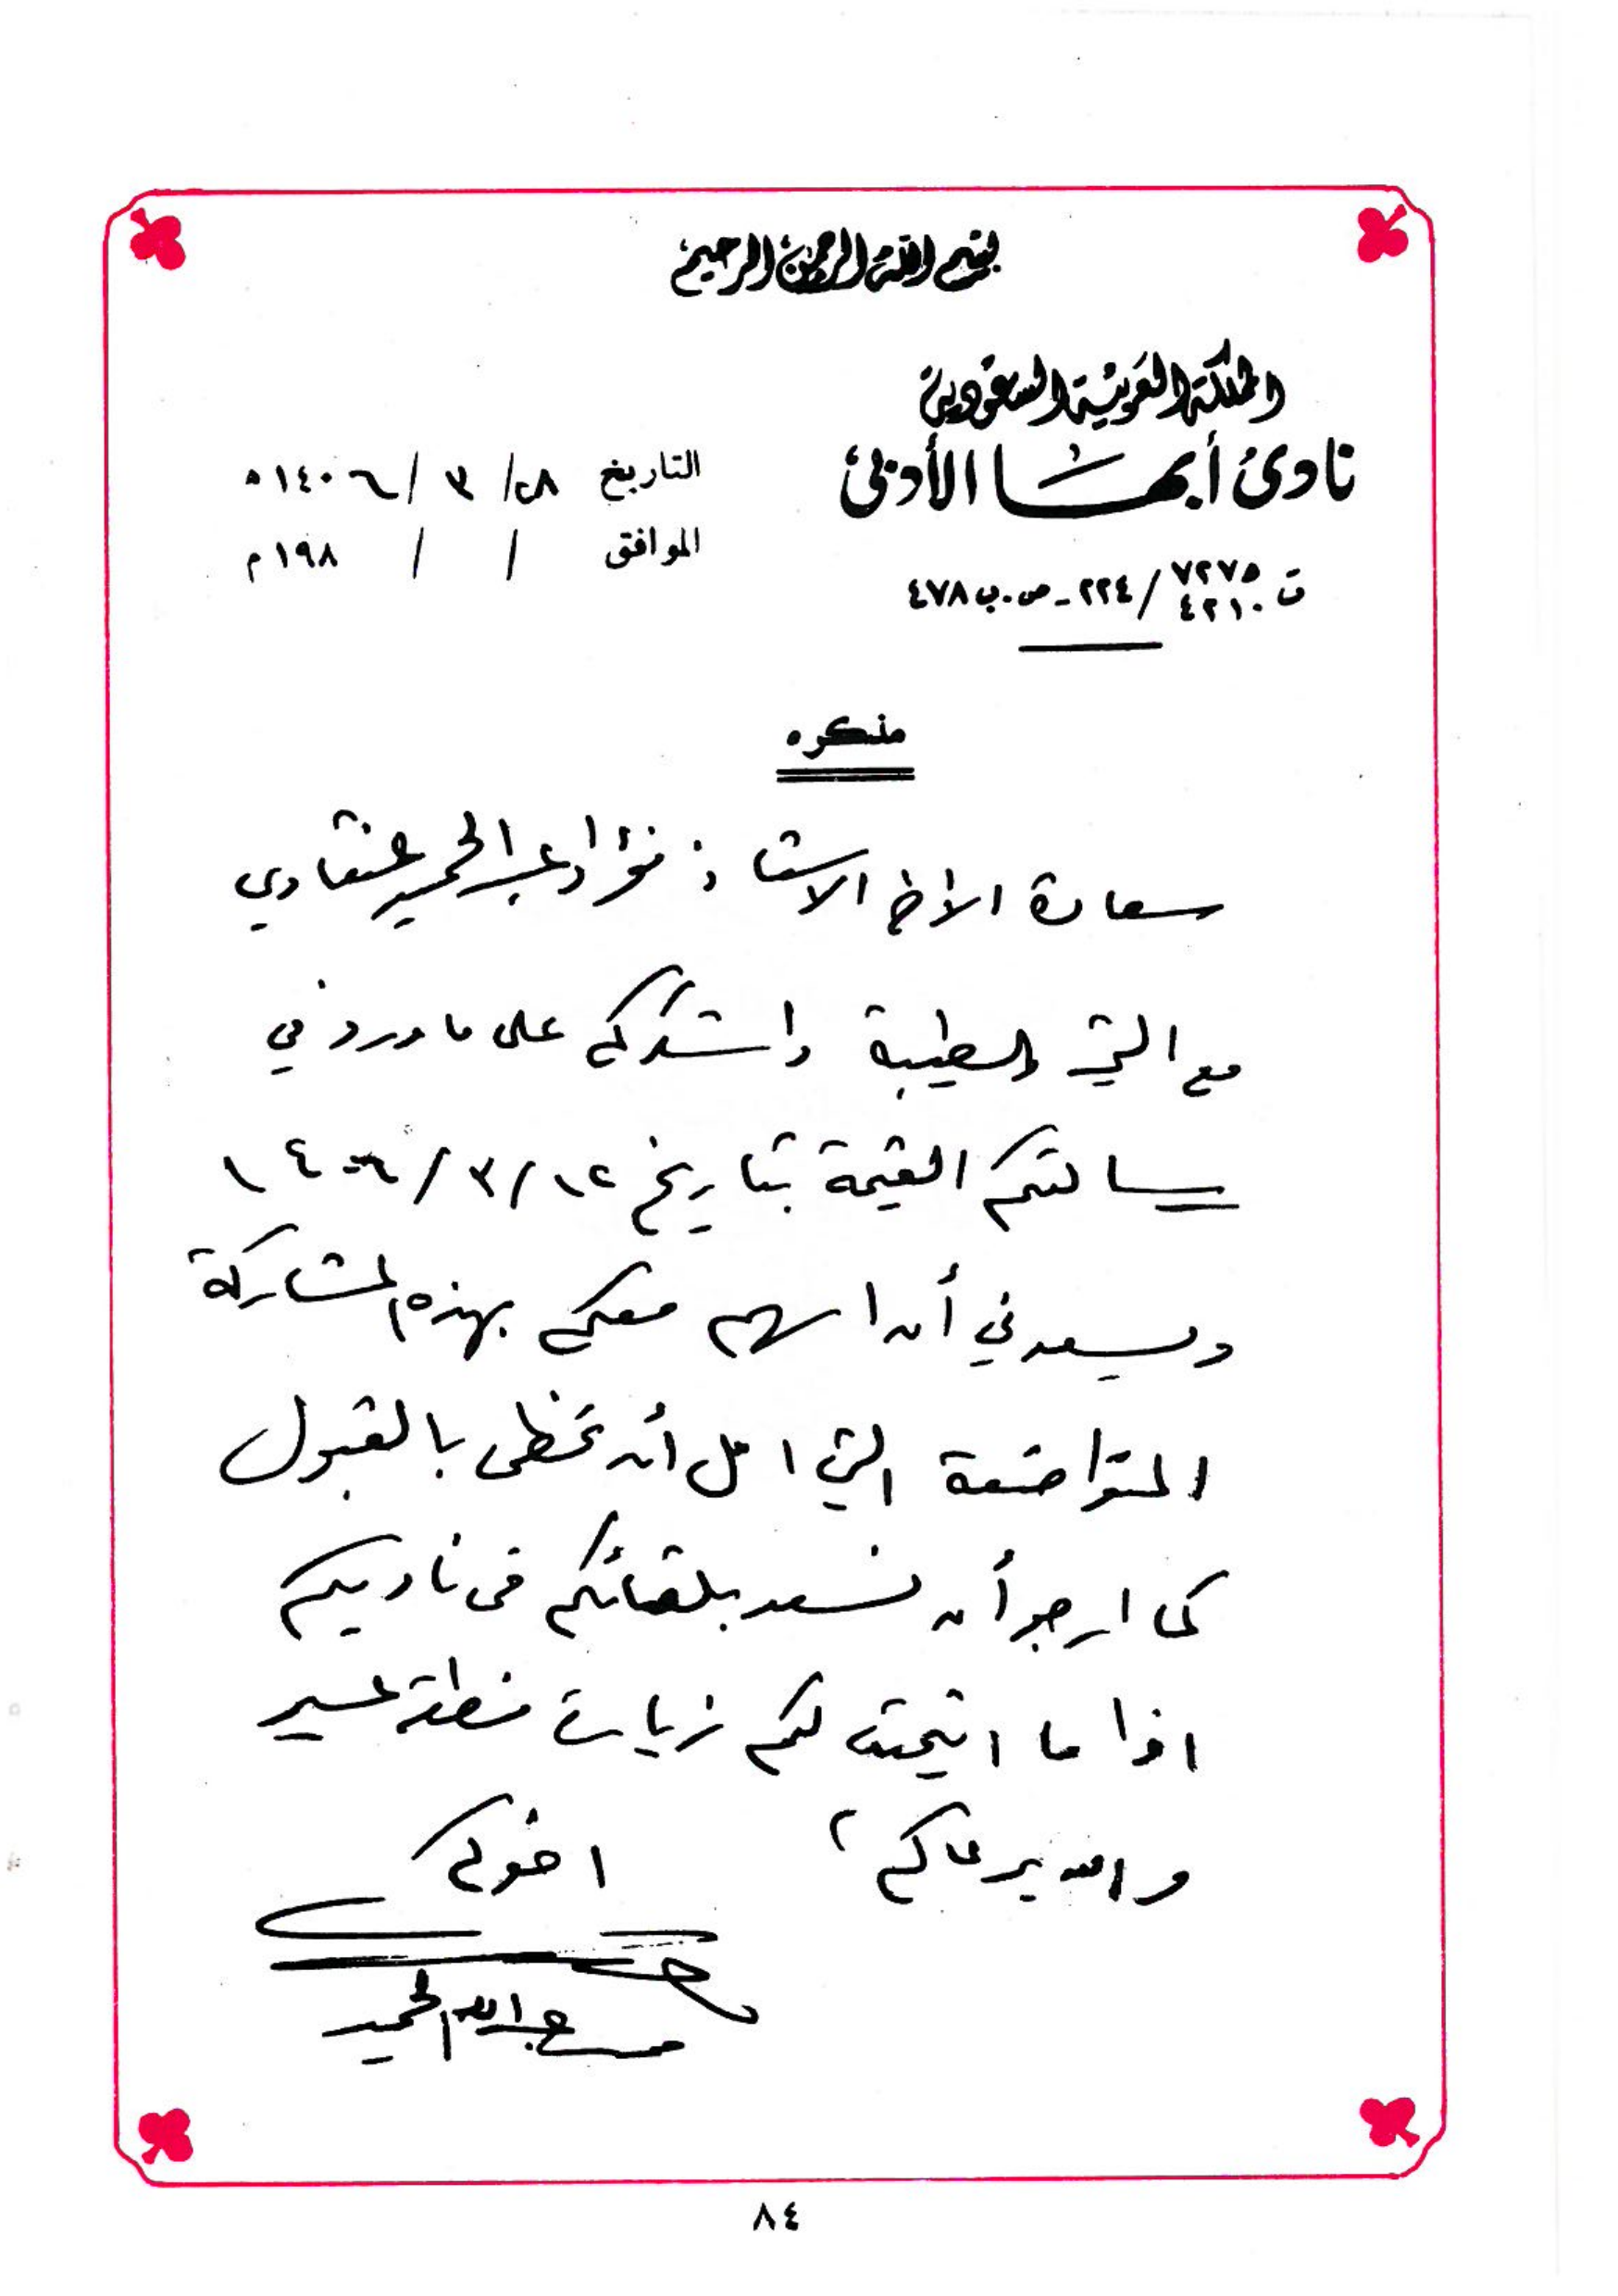 بسم الله الرحمن الرحيم
المملكة العربية السعودية
نادي أبها الأدبي
ت ٧٢٧٥ / ٤٢١٠ / ٢٢٤ - ص.ب ٤٧٨
التاريخ ٢٨ / ٣ / ١٤٠٦ ه
الموافق / / ١٩٨ م
مذكره
سعادة الاخ الاستاذ : فؤاد عبد الحميد عنقاوي
مع التحية الطيبة واشكركم على ما ورد في
رسالتكم القيمة بتاريخ ١٢ / ٣ / ١٤٠٦
ويسعدني أن اسهم معكم بهذه المشاركة
المتواضعة التي امل أن تحظى بالقبول
كما ارجو أن نسعد بلقائكم في ناديكم
اذا ما اتيحت لكم زيارة منطقة عسير
والله يرعاكم ،
اخوكم
محمد عبد الله الحميد
٨٤